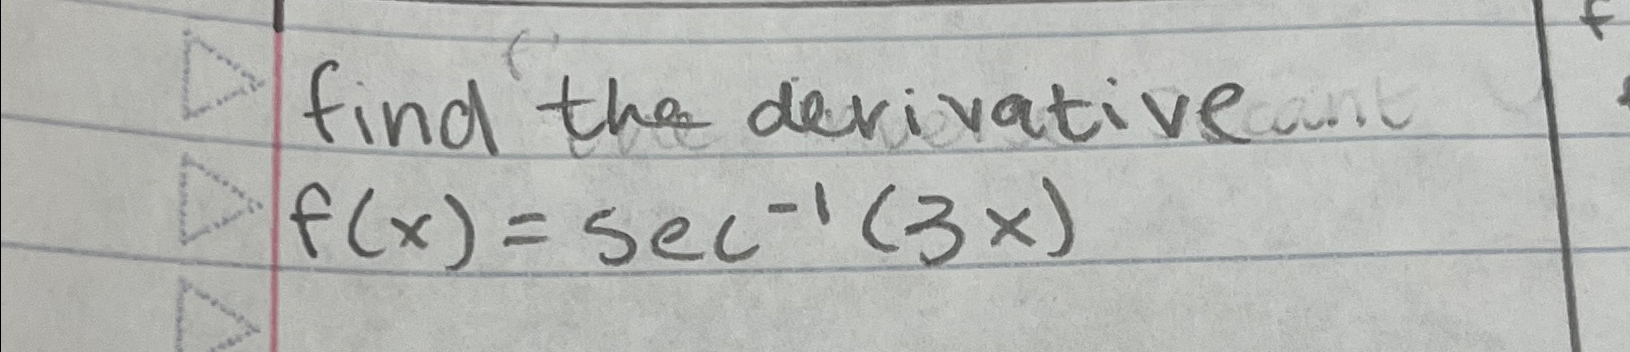 find the derivative
f(x) = sec⁻¹(3x)